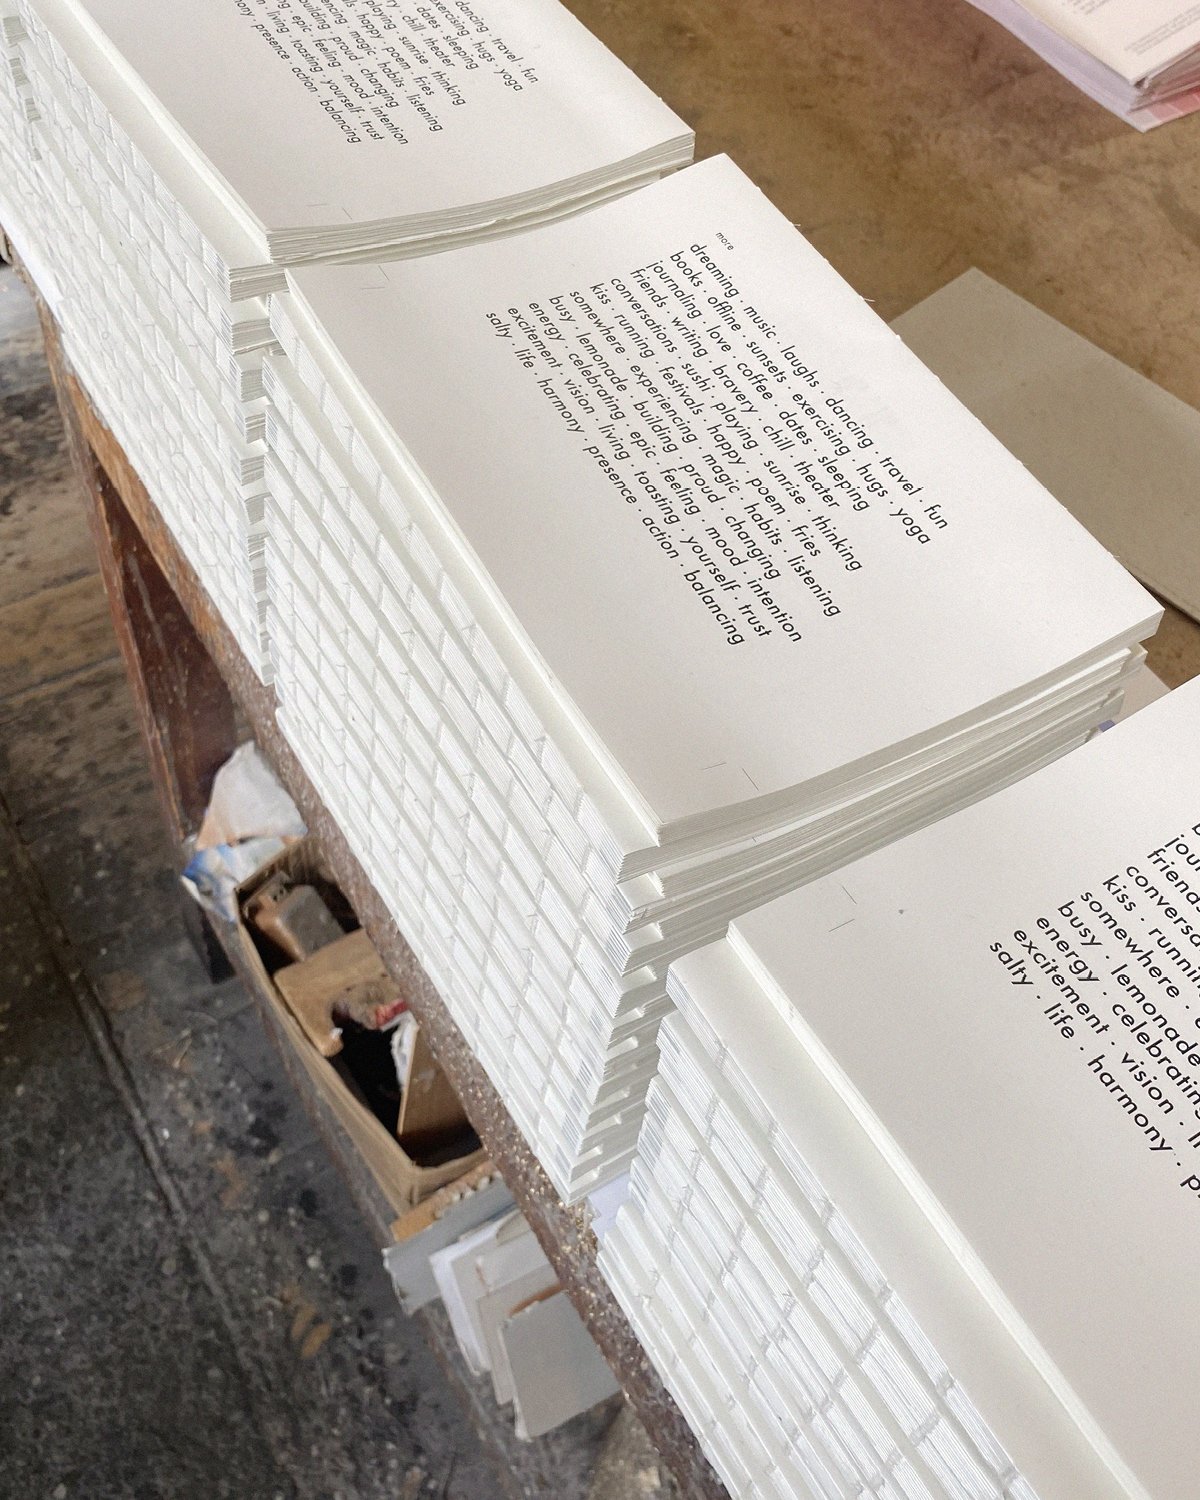 dancing · travel · fun
exercising · hugs · yoga
dates · sleeping
chill · theater
playing · sunrise · thinking
happy · poems · fries
magic · habits · listening
proud · changing
epic · feeling · mood · intention
living · toasting · yourself · trust
presence · action · balancing
more
dreaming · music · laughs · dancing · travel · fun
books · offline · sunsets · exercising · hugs · yoga
journaling · love · coffee · dates · sleeping
friends · writing · bravery · chill · theater
conversations · sushi · playing · sunrise · thinking
kiss · running · festivals · happy · poem · fries
somewhere · experiencing · magic · habits · listening
busy · lemonade · building · proud · changing
energy · celebrating · epic · feeling · mood · intention
excitement · vision · living · toasting · yourself · trust
salty · life · harmony · presence · action · balancing
friends
kiss ·
somewhere ·
busy · lemonade
energy ·
excitement · vision ·
salty · life · harmony ·